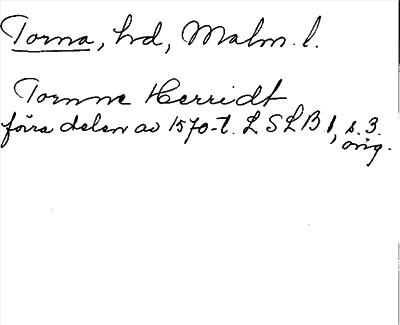 Torna, hd, Malm. l.
Tornne Herridt
förra delen av 1570-t. LSLB 1, s. 3.
orig.